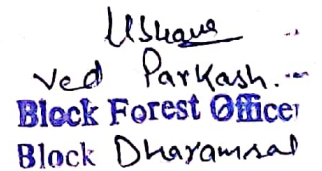 Ved Parkash.
Block Forest Officer
Block Dharamsal